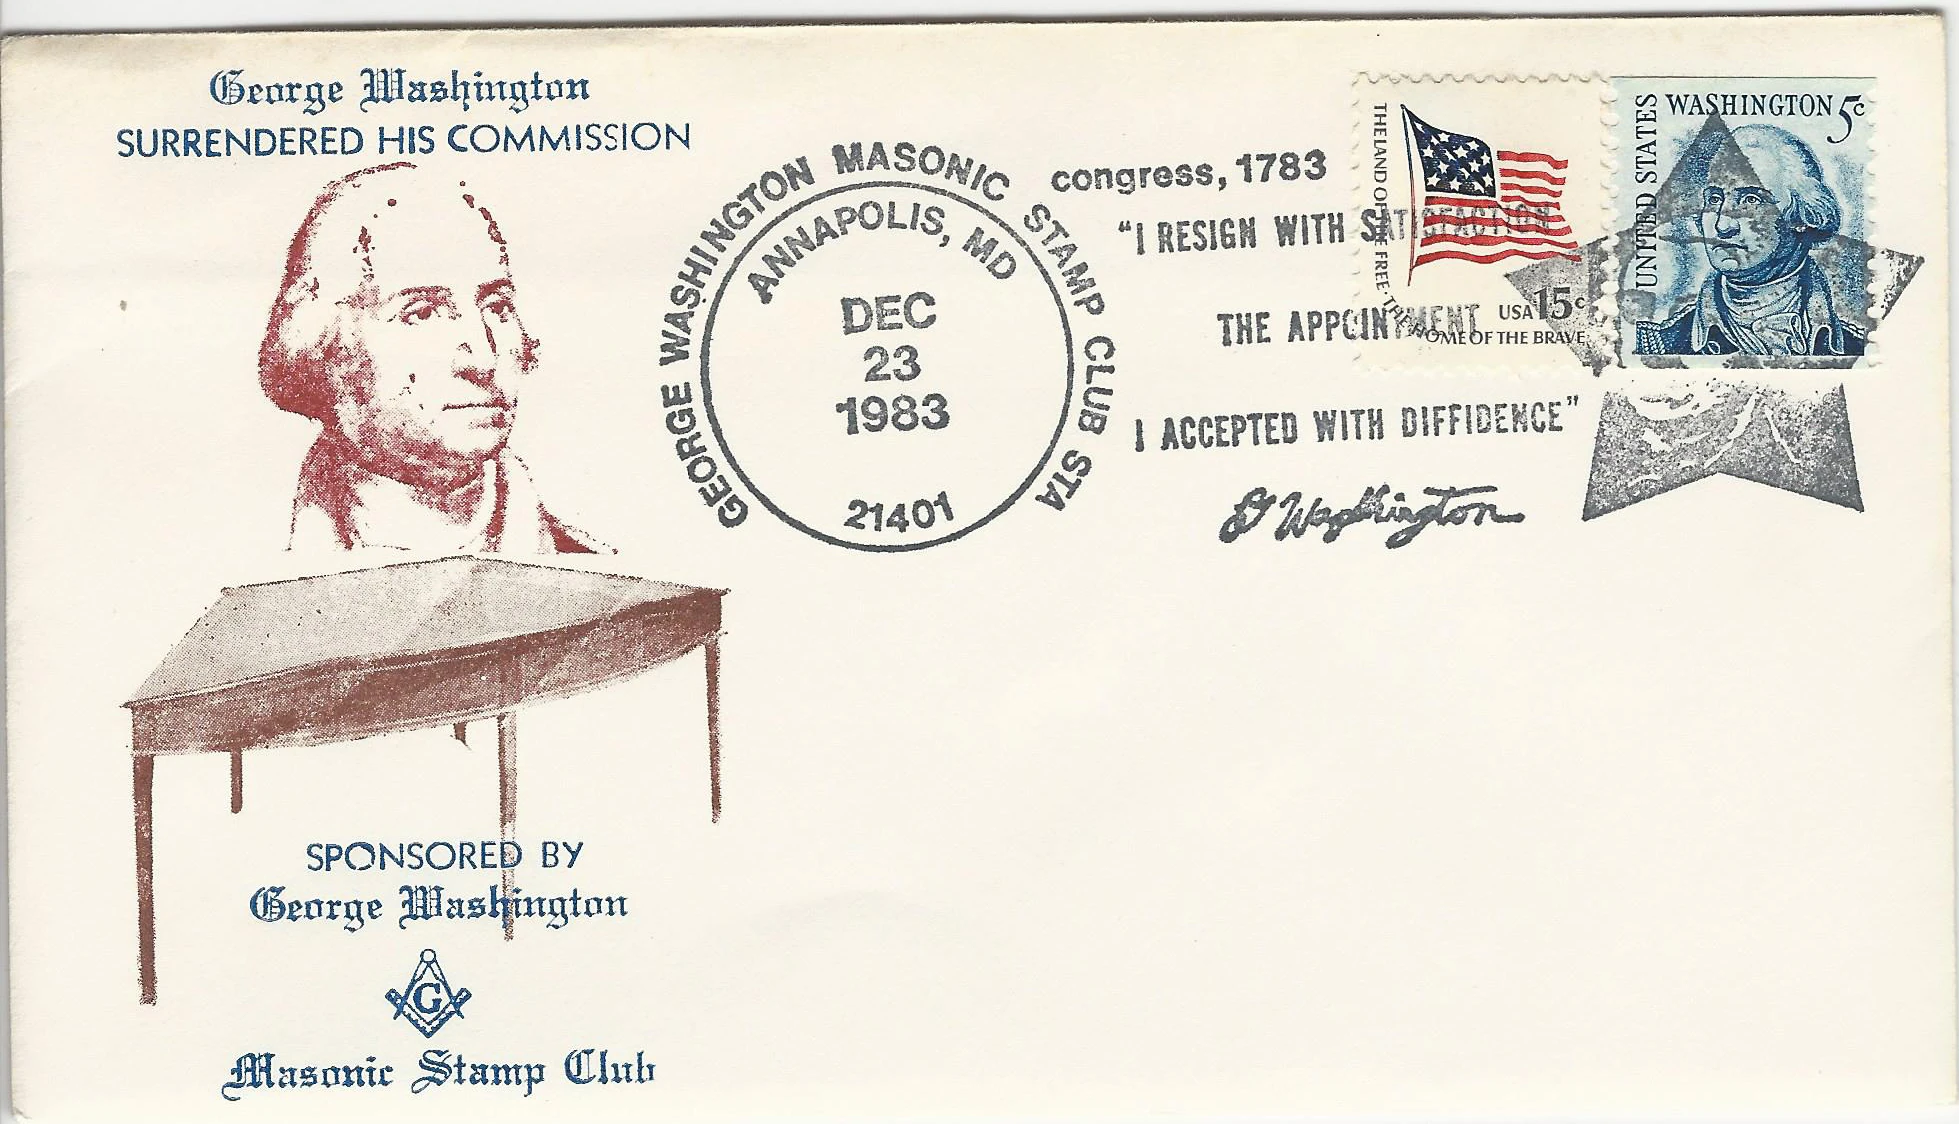 George Washington
SURRENDERED HIS COMMISSION
GEORGE WASHINGTON MASONIC STAMP CLUB STA
ANNAPOLIS, MD
DEC
23
1983
21401
congress, 1783
“I RESIGN WITH SATISFACTION
THE APPOINTMENT
I ACCEPTED WITH DIFFIDENCE”
G Washington
THE LAND OF THE FREE · THE HOME OF THE BRAVE
USA 15c
UNITED STATES
WASHINGTON 5c
SPONSORED BY
George Washington
G
Masonic Stamp Club